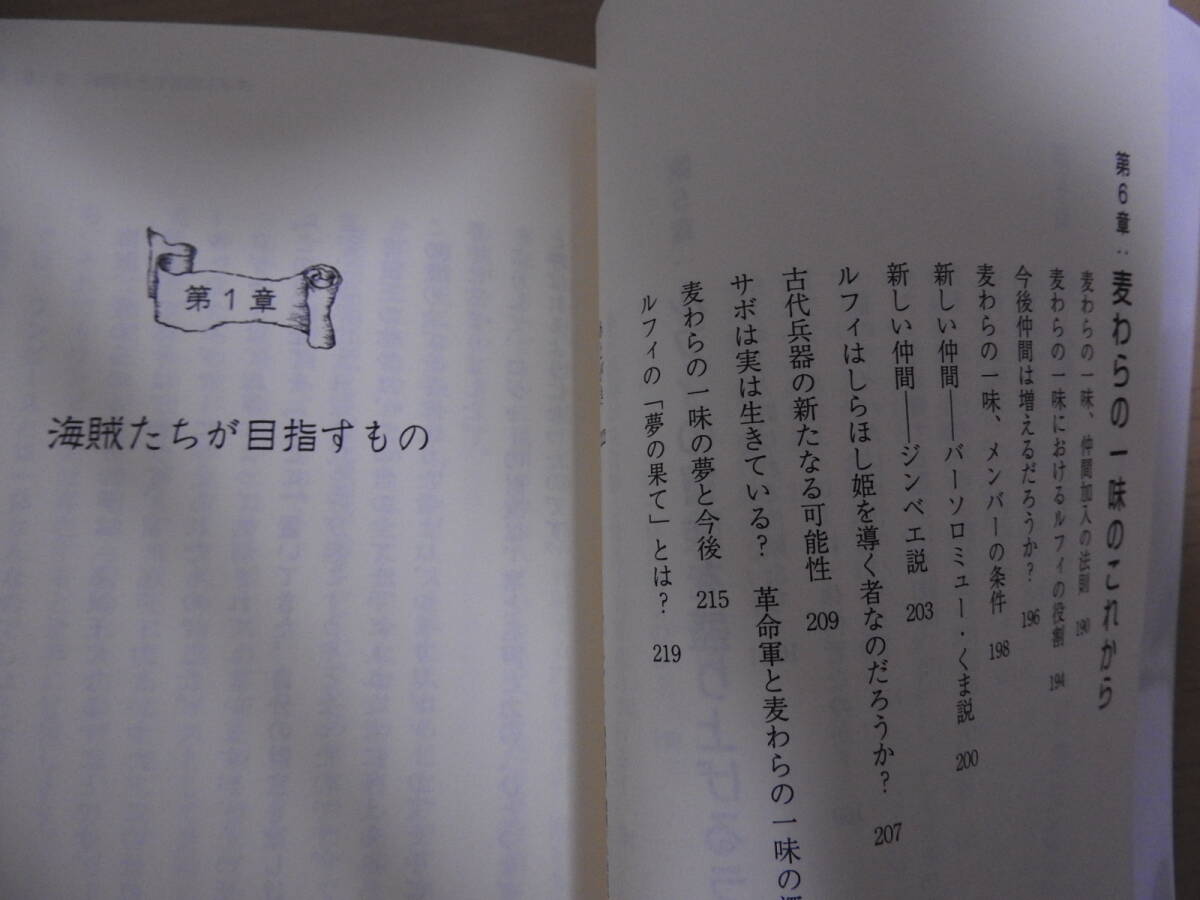 第6章：麦わらの一味のこれから
麦わらの一味、仲間加入の法則 190
麦わらの一味におけるルフィの役割 194
今後仲間は増えるだろうか？ 196
麦わらの一味、メンバーの条件 198
新しい仲間――バーソロミュー・くま説 200
新しい仲間――ジンベエ説 203
ルフィはしらほし姫を導く者なのだろうか？ 207
古代兵器の新たなる可能性 209
サボは実は生きている？ 革命軍と麦わらの一味の
麦わらの一味の夢と今後 215
ルフィの「夢の果て」とは？ 219
第1章
海賊たちが目指すもの